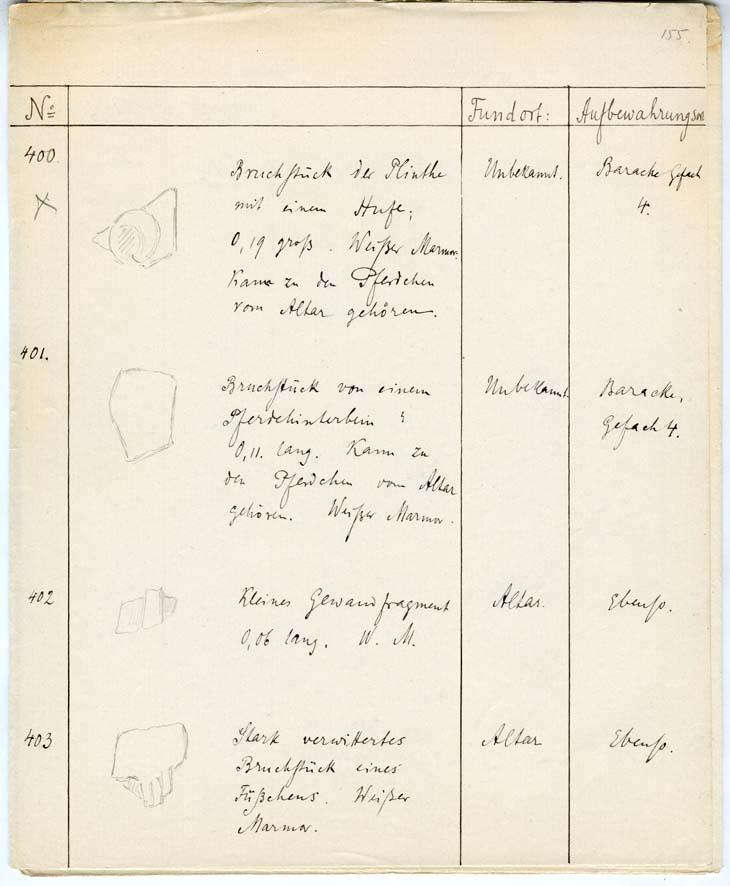 155.
No: Fundort: Aufbewahrungsort
400. Bruchstück der Plinthe Unbekannt. Baracke Gefach
mit einem Hufe; 4.
0,19 groß. Weißer Marmor.
Kann zu den Pferdchen
vom Altar gehören.
401.
Bruchstück von einem Unbekannt. Baracke,
Pferdehinterbein Gefach 4.
0,11. lang. Kann zu
den Pferdchen vom Altar
gehören. Weißer Marmor.
402 Kleines Gewandfragment Altar. Ebenso.
0,06 lang. W. M.
403 Stark verwittertes Altar Ebenso.
Bruchstück eines
Füßchens. Weißer
Marmor.